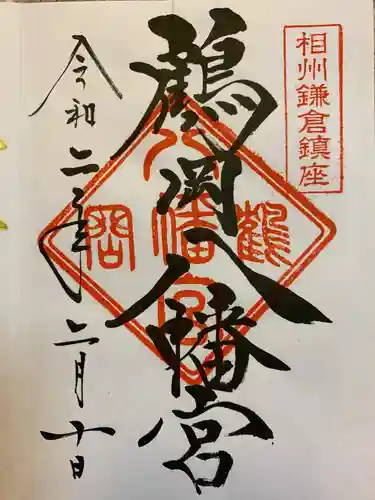 相州鎌倉鎮座
鶴岡八幡宮
令和二年二月十日
鶴岡八幡宮